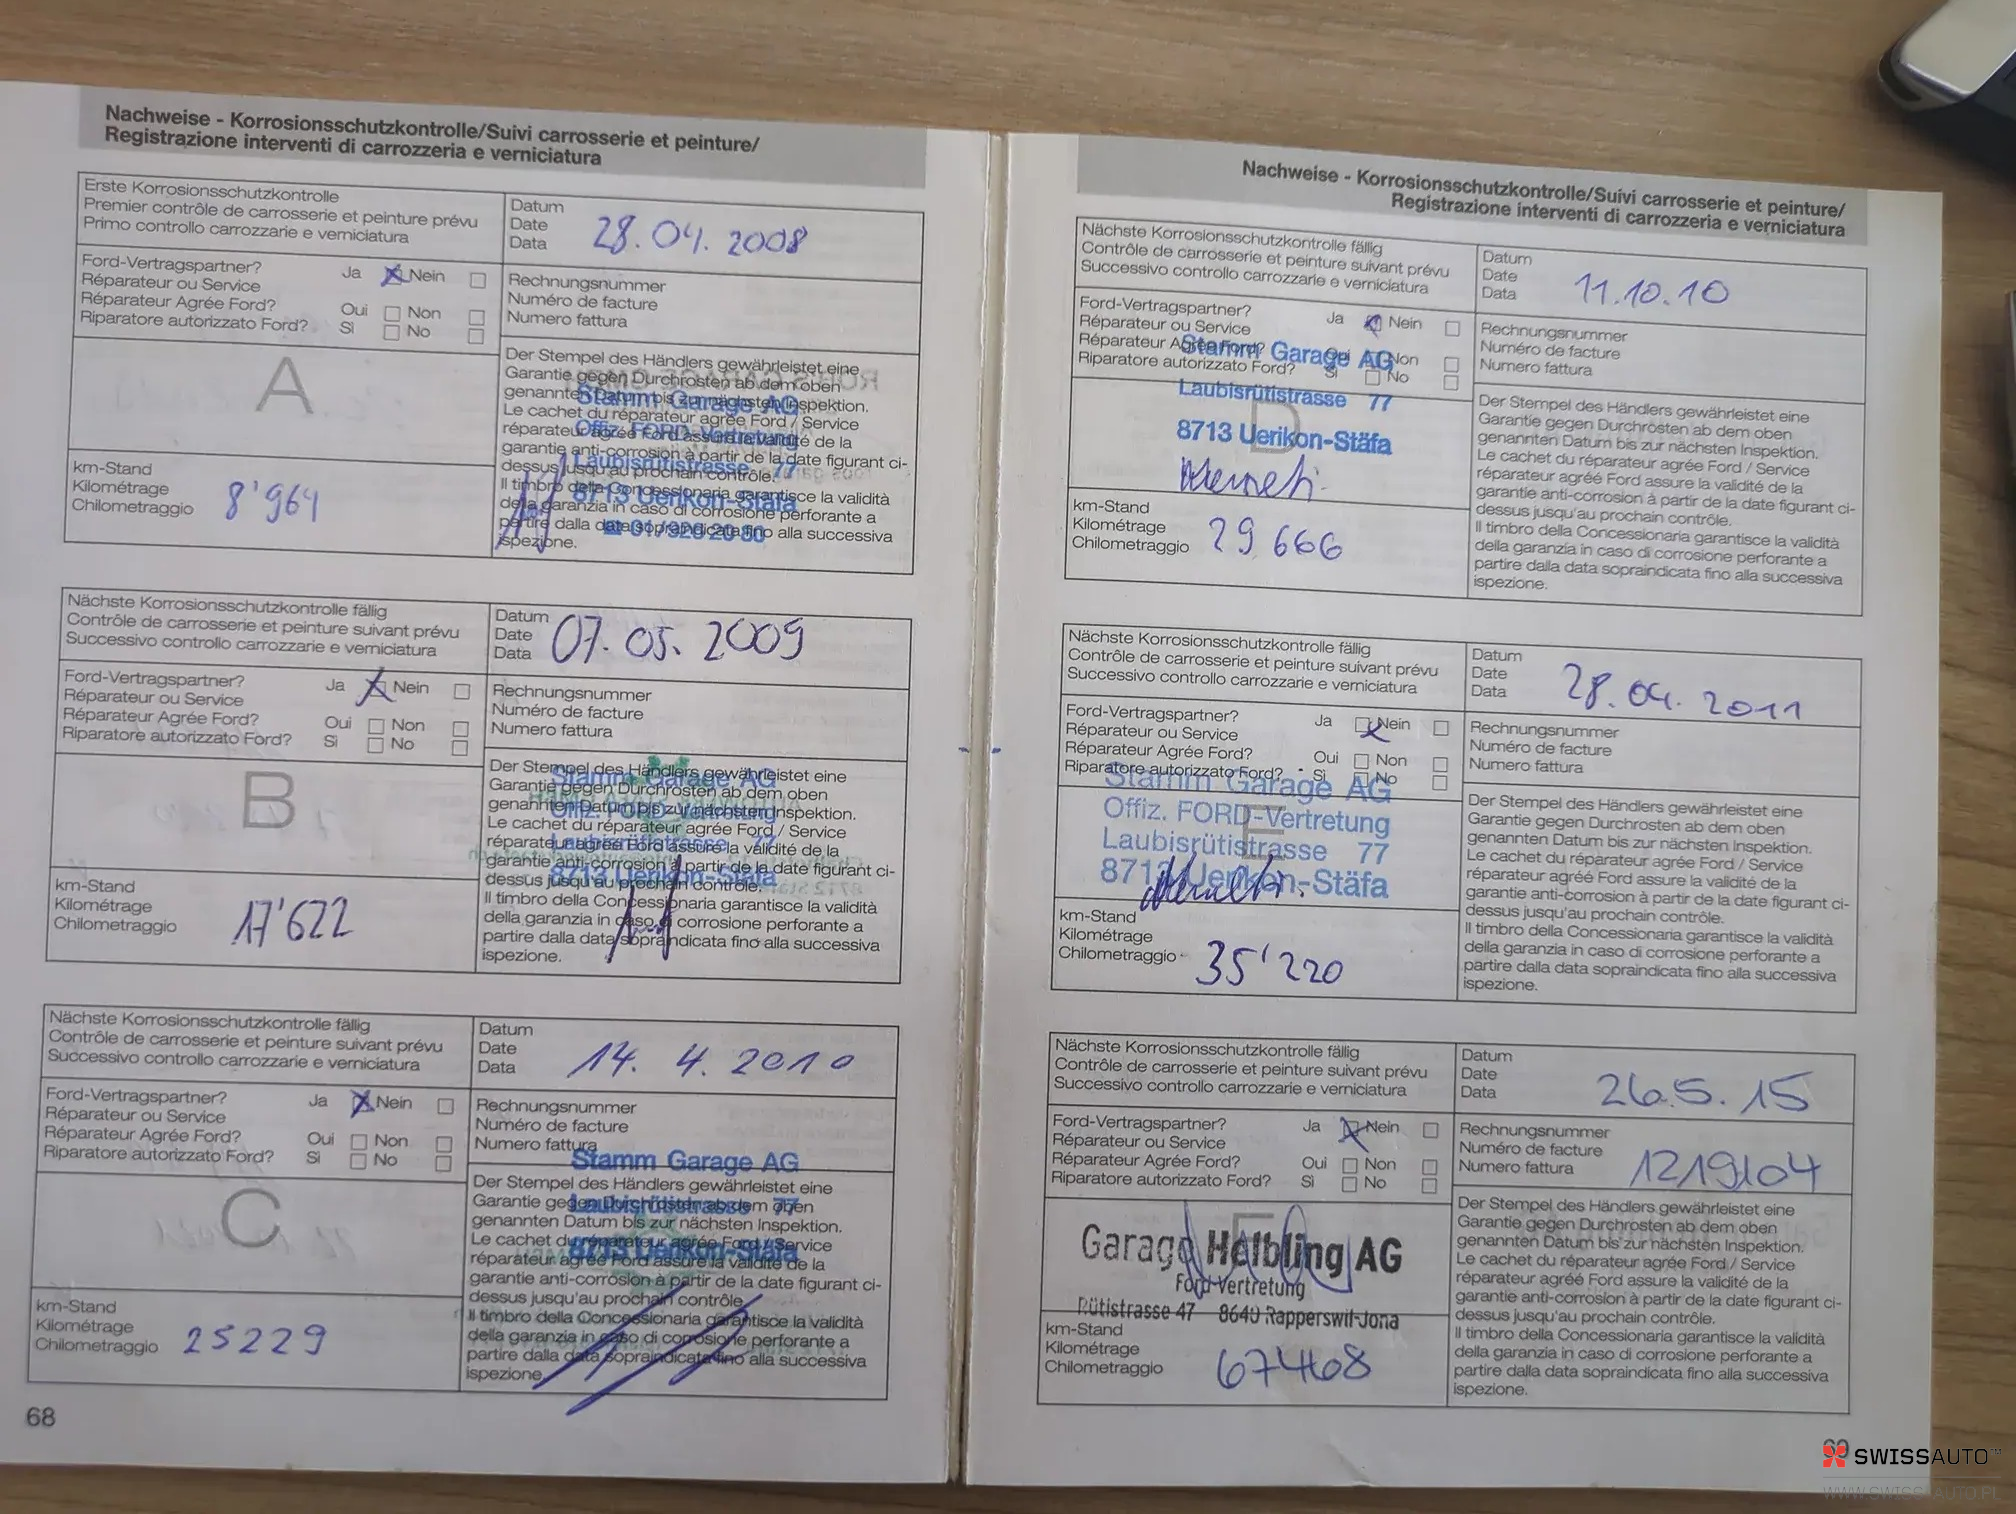 Nachweise - Korrosionsschutzkontrolle/Suivi carrosserie et peinture/
Registrazione interventi di carrozzeria e verniciatura
Erste Korrosionsschutzkontrolle
Premier contrôle de carrosserie et peinture prévu
Primo controllo carrozzarie e verniciatura
Datum
Date
Data
28.04.2008
Ford-Vertragspartner?
Réparateur ou Service
Réparateur Agrée Ford?
Riparatore autorizzato Ford?
Ja Nein
Oui Non
Si No
Rechnungsnummer
Numéro de facture
Numero fattura
A
km-Stand
Kilométrage
Chilometraggio
8'964
Der Stempel des Händlers gewährleistet eine
Garantie gegen Durchrosten ab dem oben
genannten Datum bis zur nächsten Inspektion.
Le cachet du réparateur agrée Ford / Service
réparateur agrée Ford assure la validité de la
garantie anti-corrosion à partir de la date figurant ci-
dessus jusqu'au prochain contrôle.
Il timbro della Concessionaria garantisce la validità
della garanzia in caso di corrosione perforante a
partire dalla data sopraindicata fino alla successiva
ispezione.
Stamm Garage AG
Offiz. FORD-Vertretung
Laubisrütistrasse 77
8713 Uerikon-Stäfa
Nächste Korrosionsschutzkontrolle fällig
Contrôle de carrosserie et peinture suivant prévu
Successivo controllo carrozzarie e verniciatura
Datum
Date
Data
07.05.2009
Ford-Vertragspartner?
Réparateur ou Service
Réparateur Agrée Ford?
Riparatore autorizzato Ford?
Ja Nein
Oui Non
Si No
Rechnungsnummer
Numéro de facture
Numero fattura
B
km-Stand
Kilométrage
Chilometraggio
17'622
Der Stempel des Händlers gewährleistet eine
Garantie gegen Durchrosten ab dem oben
genannten Datum bis zur nächsten Inspektion.
Le cachet du réparateur agrée Ford / Service
réparateur agrée Ford assure la validité de la
garantie anti-corrosion à partir de la date figurant ci-
dessus jusqu'au prochain contrôle.
Il timbro della Concessionaria garantisce la validità
della garanzia in caso di corrosione perforante a
partire dalla data sopraindicata fino alla successiva
ispezione.
Stamm Garage AG
Offiz. FORD-Vertretung
Laubisrütistrasse 77
8713 Uerikon-Stäfa
Nächste Korrosionsschutzkontrolle fällig
Contrôle de carrosserie et peinture suivant prévu
Successivo controllo carrozzarie e verniciatura
Datum
Date
Data
14. 4. 2010
Ford-Vertragspartner?
Réparateur ou Service
Réparateur Agrée Ford?
Riparatore autorizzato Ford?
Ja Nein
Oui Non
Si No
Rechnungsnummer
Numéro de facture
Numero fattura
C
km-Stand
Kilométrage
Chilometraggio
25229
Stamm Garage AG
Laubisrütistrasse 77
8713 Uerikon-Stäfa
Der Stempel des Händlers gewährleistet eine
Garantie gegen Durchrosten ab dem oben
genannten Datum bis zur nächsten Inspektion.
Le cachet du réparateur agrée Ford / Service
réparateur agrée Ford assure la validité de la
garantie anti-corrosion à partir de la date figurant ci-
dessus jusqu'au prochain contrôle.
Il timbro della Concessionaria garantisce la validità
della garanzia in caso di corrosione perforante a
partire dalla data sopraindicata fino alla successiva
ispezione.
68
Nachweise - Korrosionsschutzkontrolle/Suivi carrosserie et peinture/
Registrazione interventi di carrozzeria e verniciatura
Nächste Korrosionsschutzkontrolle fällig
Contrôle de carrosserie et peinture suivant prévu
Successivo controllo carrozzarie e verniciatura
Datum
Date
Data
11.10.10
Ford-Vertragspartner?
Réparateur ou Service
Réparateur Agrée Ford?
Riparatore autorizzato Ford?
Ja Nein
Oui Non
Si No
Rechnungsnummer
Numéro de facture
Numero fattura
Stamm Garage AG
Laubisrütistrasse 77
8713 Uerikon-Stäfa
D
km-Stand
Kilométrage
Chilometraggio
29 666
Der Stempel des Händlers gewährleistet eine
Garantie gegen Durchrosten ab dem oben
genannten Datum bis zur nächsten Inspektion.
Le cachet du réparateur agrée Ford / Service
réparateur agréé Ford assure la validité de la
garantie anti-corrosion à partir de la date figurant ci-
dessus jusqu'au prochain contrôle.
Il timbro della Concessionaria garantisce la validità
della garanzia in caso di corrosione perforante a
partire dalla data sopraindicata fino alla successiva
ispezione.
Nächste Korrosionsschutzkontrolle fällig
Contrôle de carrosserie et peinture suivant prévu
Successivo controllo carrozzarie e verniciatura
Datum
Date
Data
28.04.2011
Ford-Vertragspartner?
Réparateur ou Service
Réparateur Agrée Ford?
Riparatore autorizzato Ford?
Ja Nein
Oui Non
Si No
Rechnungsnummer
Numéro de facture
Numero fattura
Stamm Garage AG
Offiz. FORD-Vertretung
Laubisrütistrasse 77
8713 Uerikon-Stäfa
E
km-Stand
Kilométrage
Chilometraggio
35'220
Der Stempel des Händlers gewährleistet eine
Garantie gegen Durchrosten ab dem oben
genannten Datum bis zur nächsten Inspektion.
Le cachet du réparateur agrée Ford / Service
réparateur agréé Ford assure la validité de la
garantie anti-corrosion à partir de la date figurant ci-
dessus jusqu'au prochain contrôle.
Il timbro della Concessionaria garantisce la validità
della garanzia in caso di corrosione perforante a
partire dalla data sopraindicata fino alla successiva
ispezione.
Nächste Korrosionsschutzkontrolle fällig
Contrôle de carrosserie et peinture suivant prévu
Successivo controllo carrozzarie e verniciatura
Datum
Date
Data
26.5.15
Ford-Vertragspartner?
Réparateur ou Service
Réparateur Agrée Ford?
Riparatore autorizzato Ford?
Ja Nein
Oui Non
Si No
Rechnungsnummer
Numéro de facture
Numero fattura
1219104
Garage Helbling AG
Ford-Vertretung
Rütistrasse 47 8640 Rapperswil-Jona
km-Stand
Kilométrage
Chilometraggio
67468
Der Stempel des Händlers gewährleistet eine
Garantie gegen Durchrosten ab dem oben
genannten Datum bis zur nächsten Inspektion.
Le cachet du réparateur agrée Ford / Service
réparateur agréé Ford assure la validité de la
garantie anti-corrosion à partir de la date figurant ci-
dessus jusqu'au prochain contrôle.
Il timbro della Concessionaria garantisce la validità
della garanzia in caso di corrosione perforante a
partire dalla data sopraindicata fino alla successiva
ispezione.
SWISSAUTO™
WWW.SWISSAUTO.PL